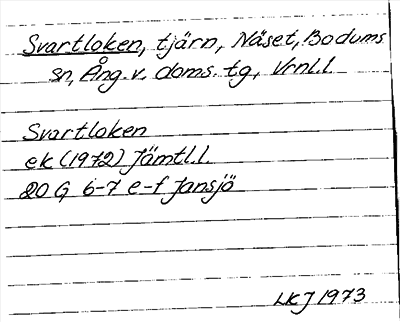 Svartloken, tjärn, Näset, Bodums
sn, Ång. v. doms. tg, Vrnl.l.
Svartloken
ek (1972) Jämtl.l.
20 G 6-7 e-f Jansjö
LKJ 1973